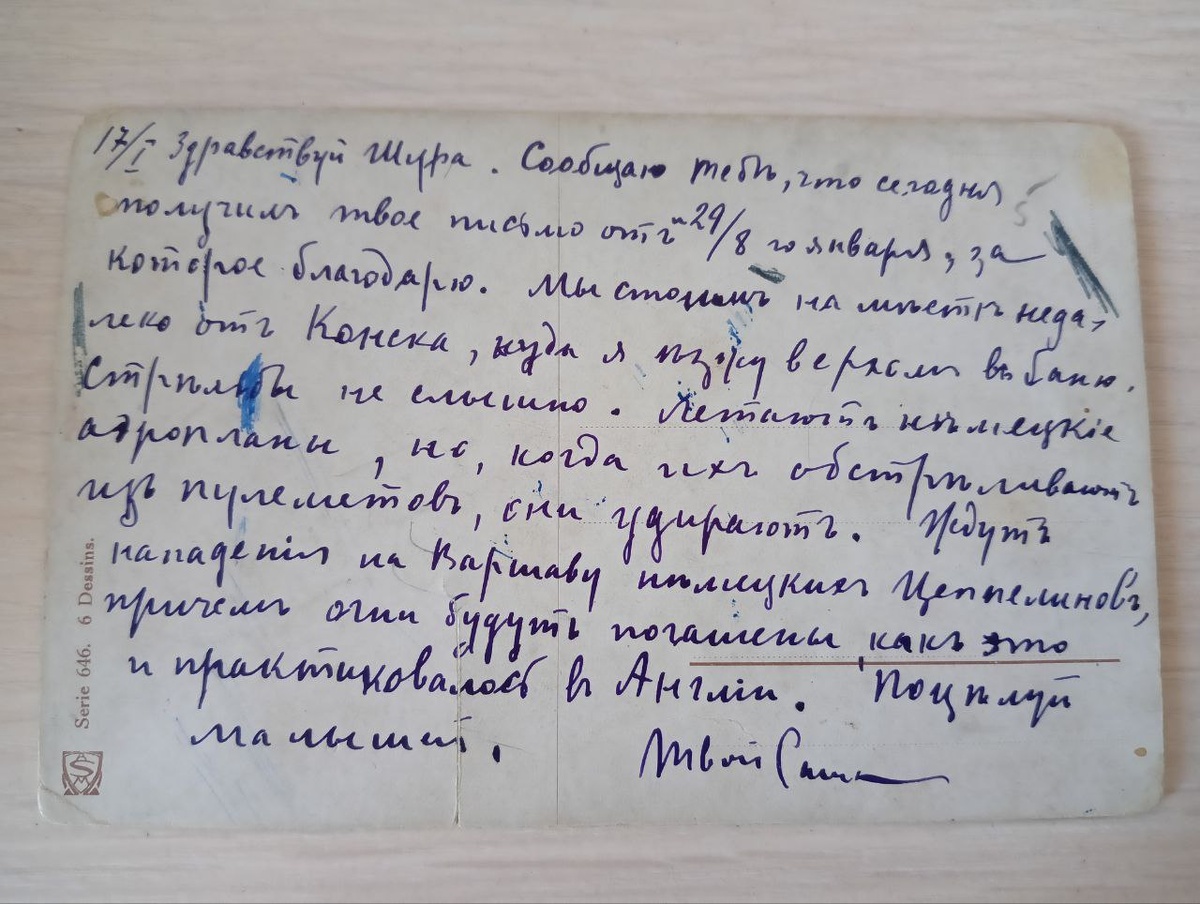 17/I Здравствуй Шура. Сообщаю тебѣ, что сегодня
получилъ твое письмо отъ 29/8 го января, за
которое благодарю. Мы стоимъ на мѣстѣ неда-
леко отъ Конска, куда я ѣзжу верхомъ въ баню.
Стрѣльбы не слышно. Летаютъ нѣмецкіе
аэропланы, но, когда ихъ обстрѣливаютъ
изъ пулеметовъ, они удираютъ. Ждутъ
нападенія на Варшаву нѣмецкихъ Цеппелиновъ,
причемъ огни будутъ погашены, какъ это
и практиковалось въ Англіи. Поцѣлуй
малышей.
Твой Саша
Serie 646. 6 Dessins.